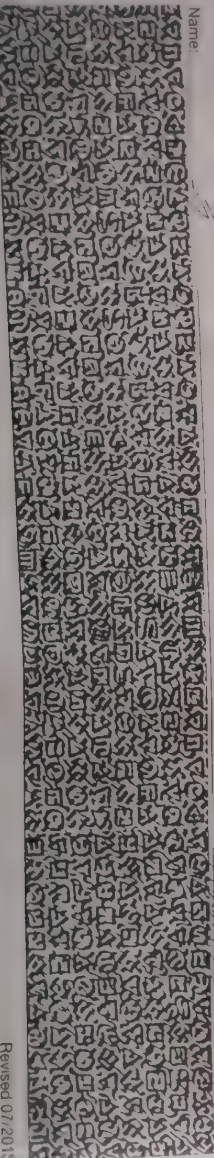 Name:
Revised 07/201